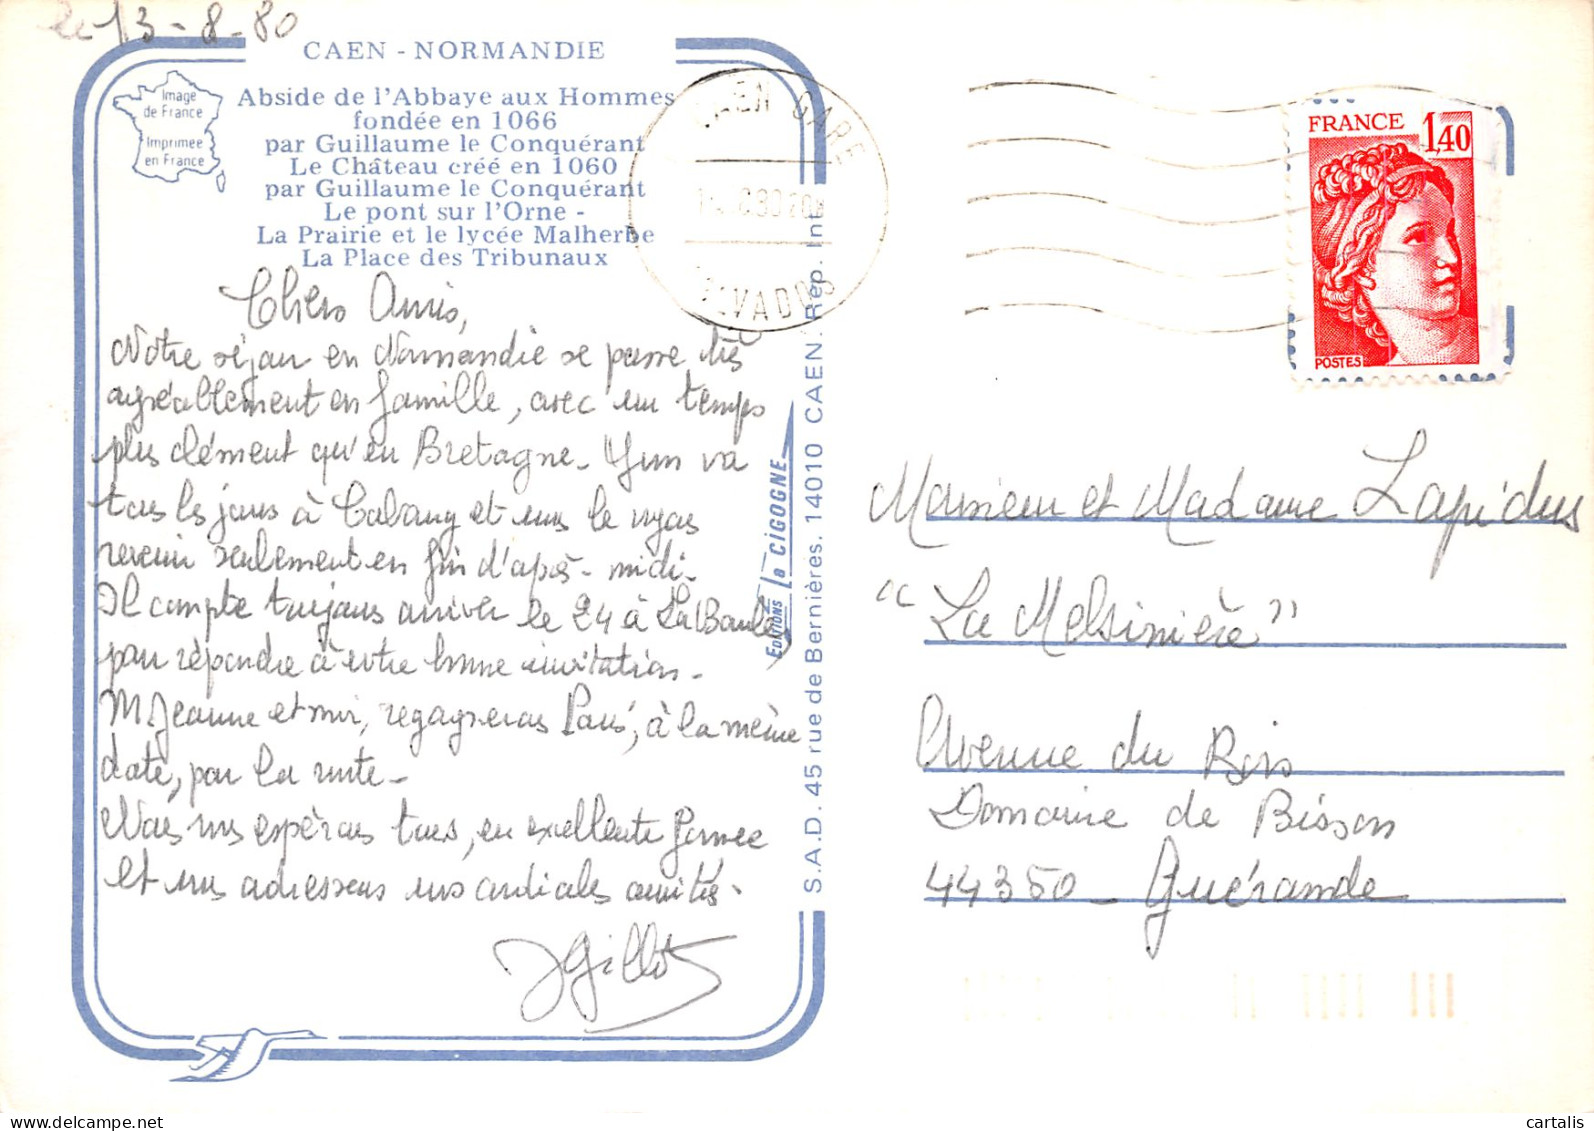 le 13-8-80
CAEN - NORMANDIE
Image
de France
Imprimée
en France
Abside de l'Abbaye aux Hommes
fondée en 1066
par Guillaume le Conquérant
Le Château créé en 1060
par Guillaume le Conquérant
Le pont sur l'Orne -
La Prairie et le lycée Malherbe
La Place des Tribunaux
Chers Amis,
Notre séjour en Normandie se passe très
agréablement en famille, avec un temps
plus clément qu'en Bretagne - va
tous les jours à Cabourg et nous le voyons
revenir seulement en fin d'après-midi.
Il compte toujours arriver le 24 à La Baule,
pour répondre à votre bonne invitation -
M. Jeanne et moi, regagnerons Paris, à la même
date, par la route -
Nous vous espérons tous, en excellente forme
et vous adressons nos cordiales amitiés.
JGillot
EDITIONS La CIGOGNE
S.A.D. 45 rue de Bernières. 14010 CAEN. Rep. Int
CAEN GARE
CALVADOS
FRANCE 1,40
POSTES
Monsieur et Madame Lapidus
"La Melsinière"
Avenue du Bois
Domaine de Bisson
44350 - Guérande
cartalis
delcampe.net